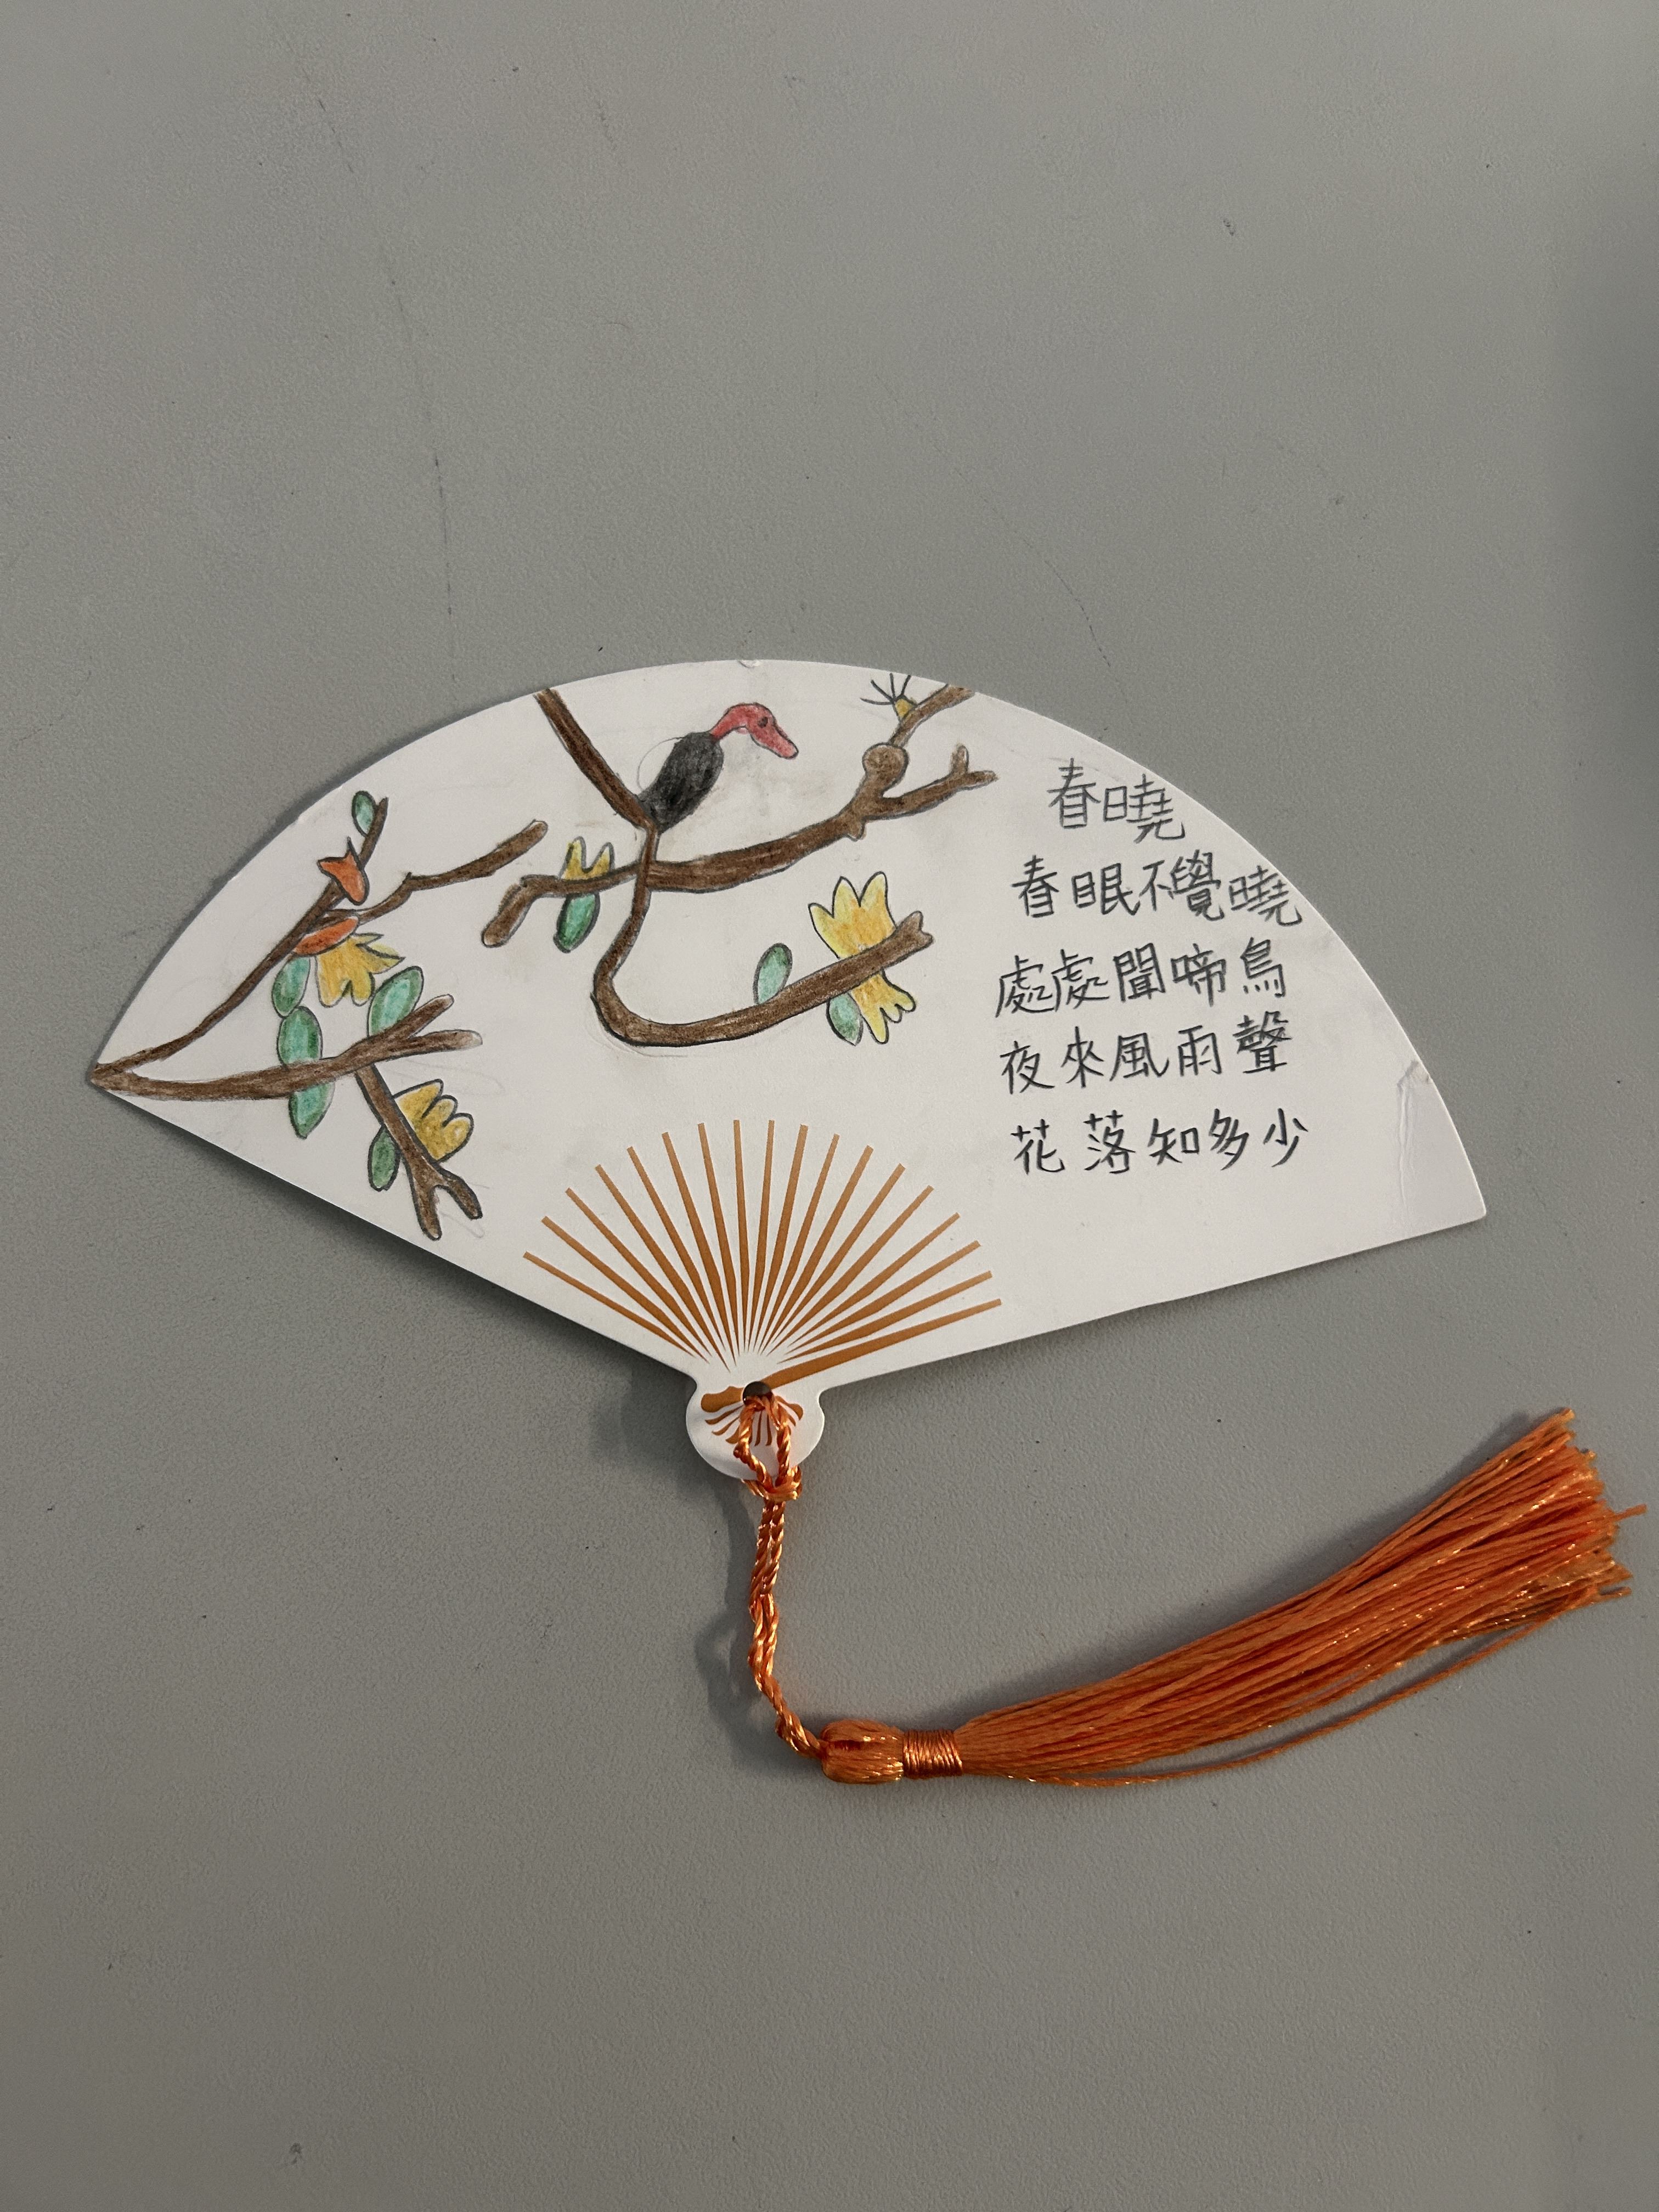 春曉
春眠不覺曉
處處聞啼鳥
夜來風雨聲
花落知多少